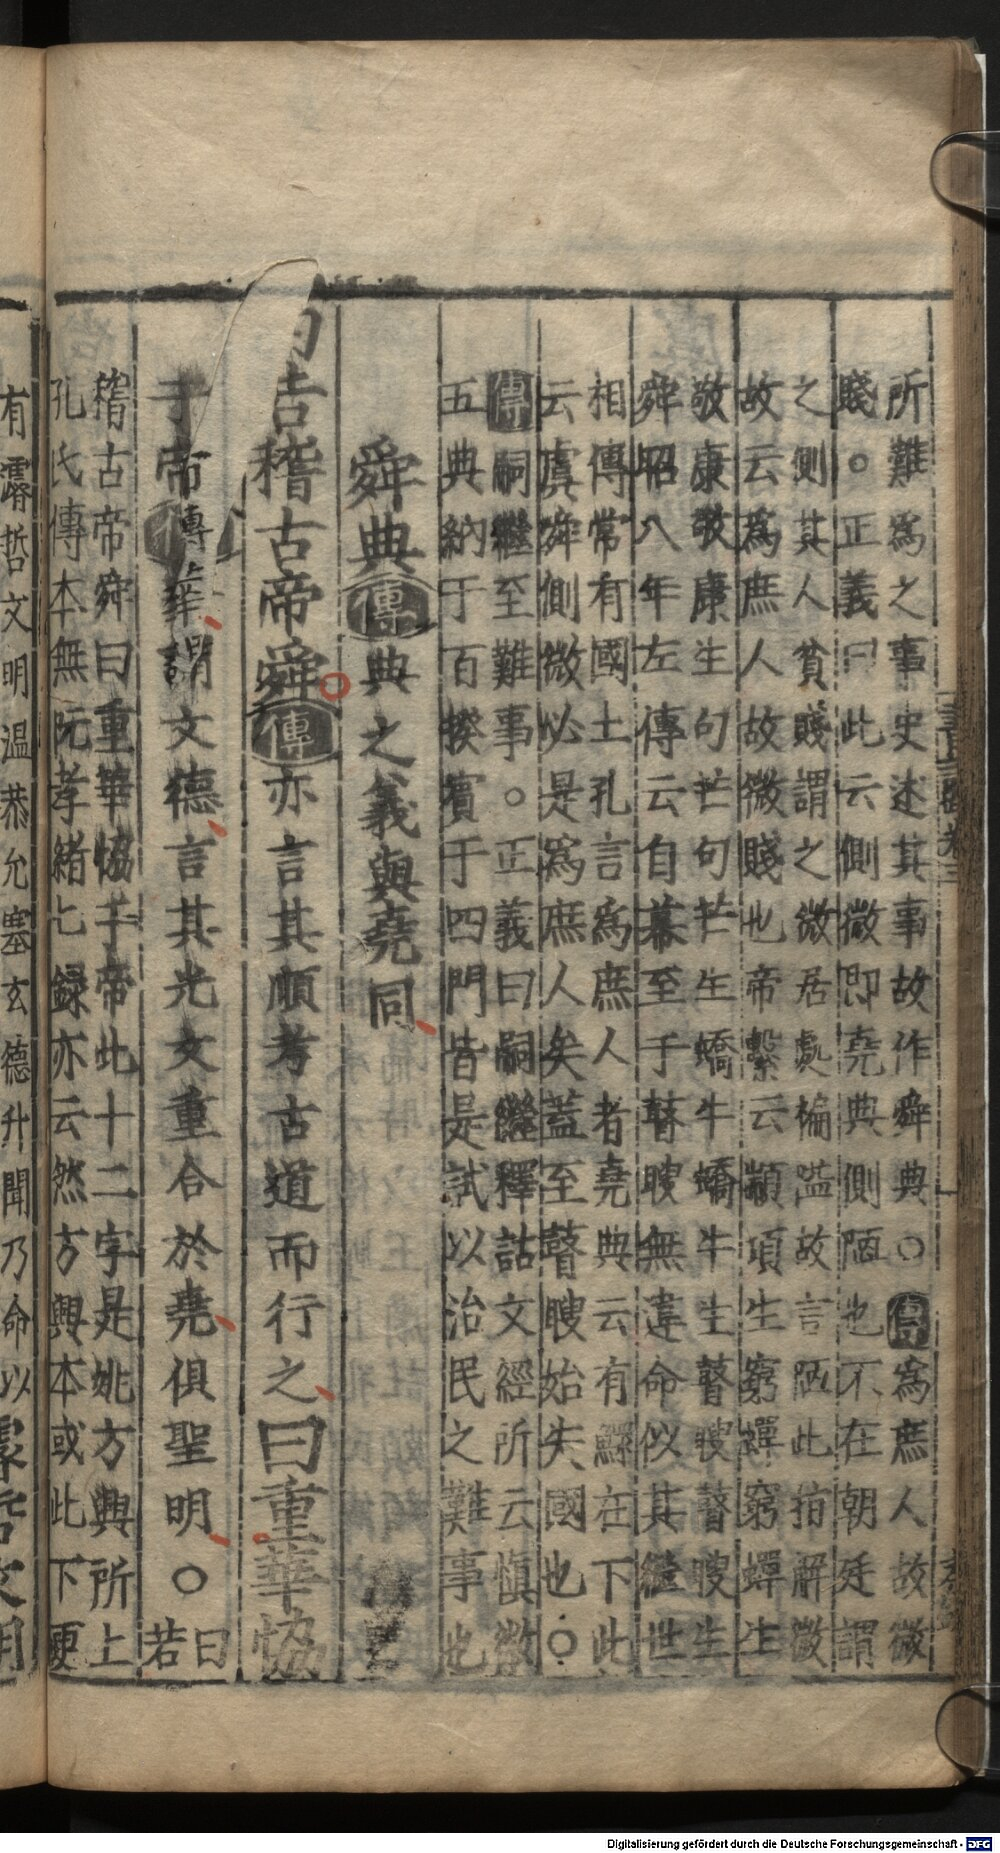 所難為之事史述其事故作舜典○傳為庶人故微
賤○正義曰此云側微即堯典側陋也不在朝廷謂
之側其人貧賤謂之微居處褊隘故言陋此指解微
故云為庶人故微賤也帝繫云顓頊生窮蟬窮蟬生
敬康敬康生句芒句芒生蟜牛蟜牛生瞽瞍瞽瞍生
舜昭八年左傳云自幕至于瞽瞍無違命似其繼世
相傳常有國土孔言為庶人者堯典云有鰥在下此
云虞舜側微必是為庶人矣蓋至瞽瞍始失國也○
傳嗣繼至難事○正義曰嗣繼釋詁文經所云慎徽
五典納于百揆賓于四門皆是試以治民之難事也
舜典傳典之義與堯同
曰若稽古帝舜傳亦言其順考古道而行之曰重華協
于帝傳華謂文德言其光文重合於堯俱聖明○曰若
稽古帝舜曰重華協于帝此十二字是姚方興所上
孔氏傳本無阮孝緒七錄亦云然方興本或此下更
有濬哲文明溫恭允塞玄德升聞乃命以
Digitalisierung gefördert durch die Deutsche Forschungsgemeinschaft - DFG